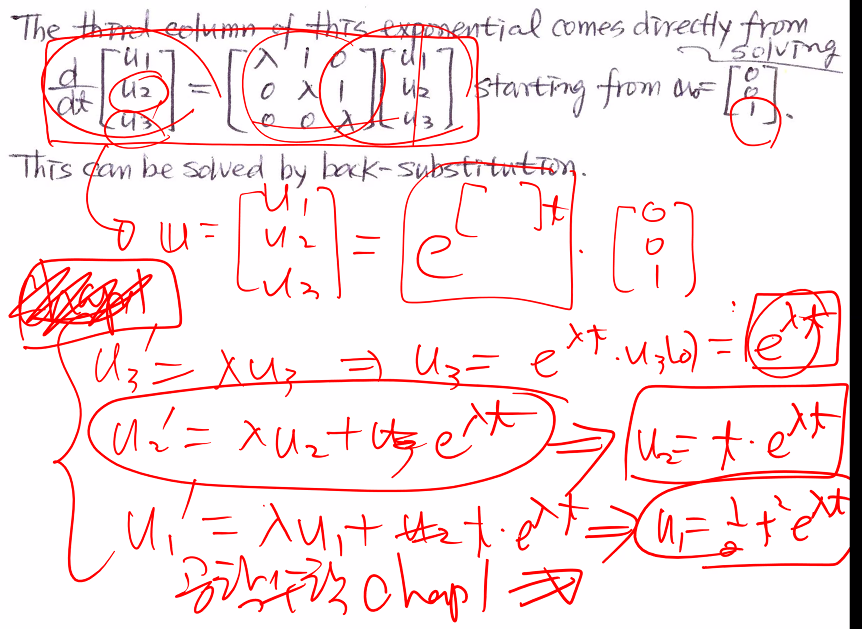 The third column of this exponential comes directly from solving
d/dt [u₁ u₂ u₃] = [λ 1 0; 0 λ 1; 0 0 λ] [u₁ u₂ u₃] starting from u₀ = [0 0 1].
This can be solved by back-substitution.
u = [u₁ u₂ u₃] = e^{[ ]t} · [0 0 1]
u₃' = λu₃ ⇒ u₃ = e^{λt} · u₃(0) = e^{λt}
u₂' = λu₂ + e^{λt} ⇒ u₂ = t · e^{λt}
u₁' = λu₁ + t · e^{λt} ⇒ u₁ = ½ t² e^{λt}
공학수학 Chap 1 ⇒